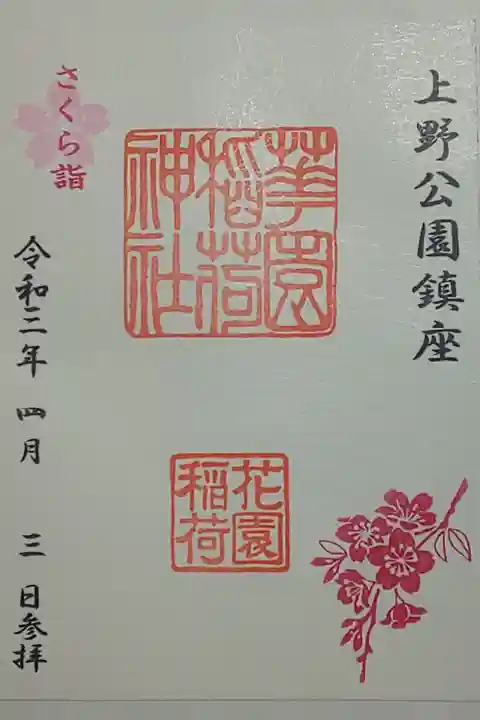 上野公園鎮座
華園
稲荷
神社
花園
稲荷
さくら詣
令和三年 四月 三 日参拝